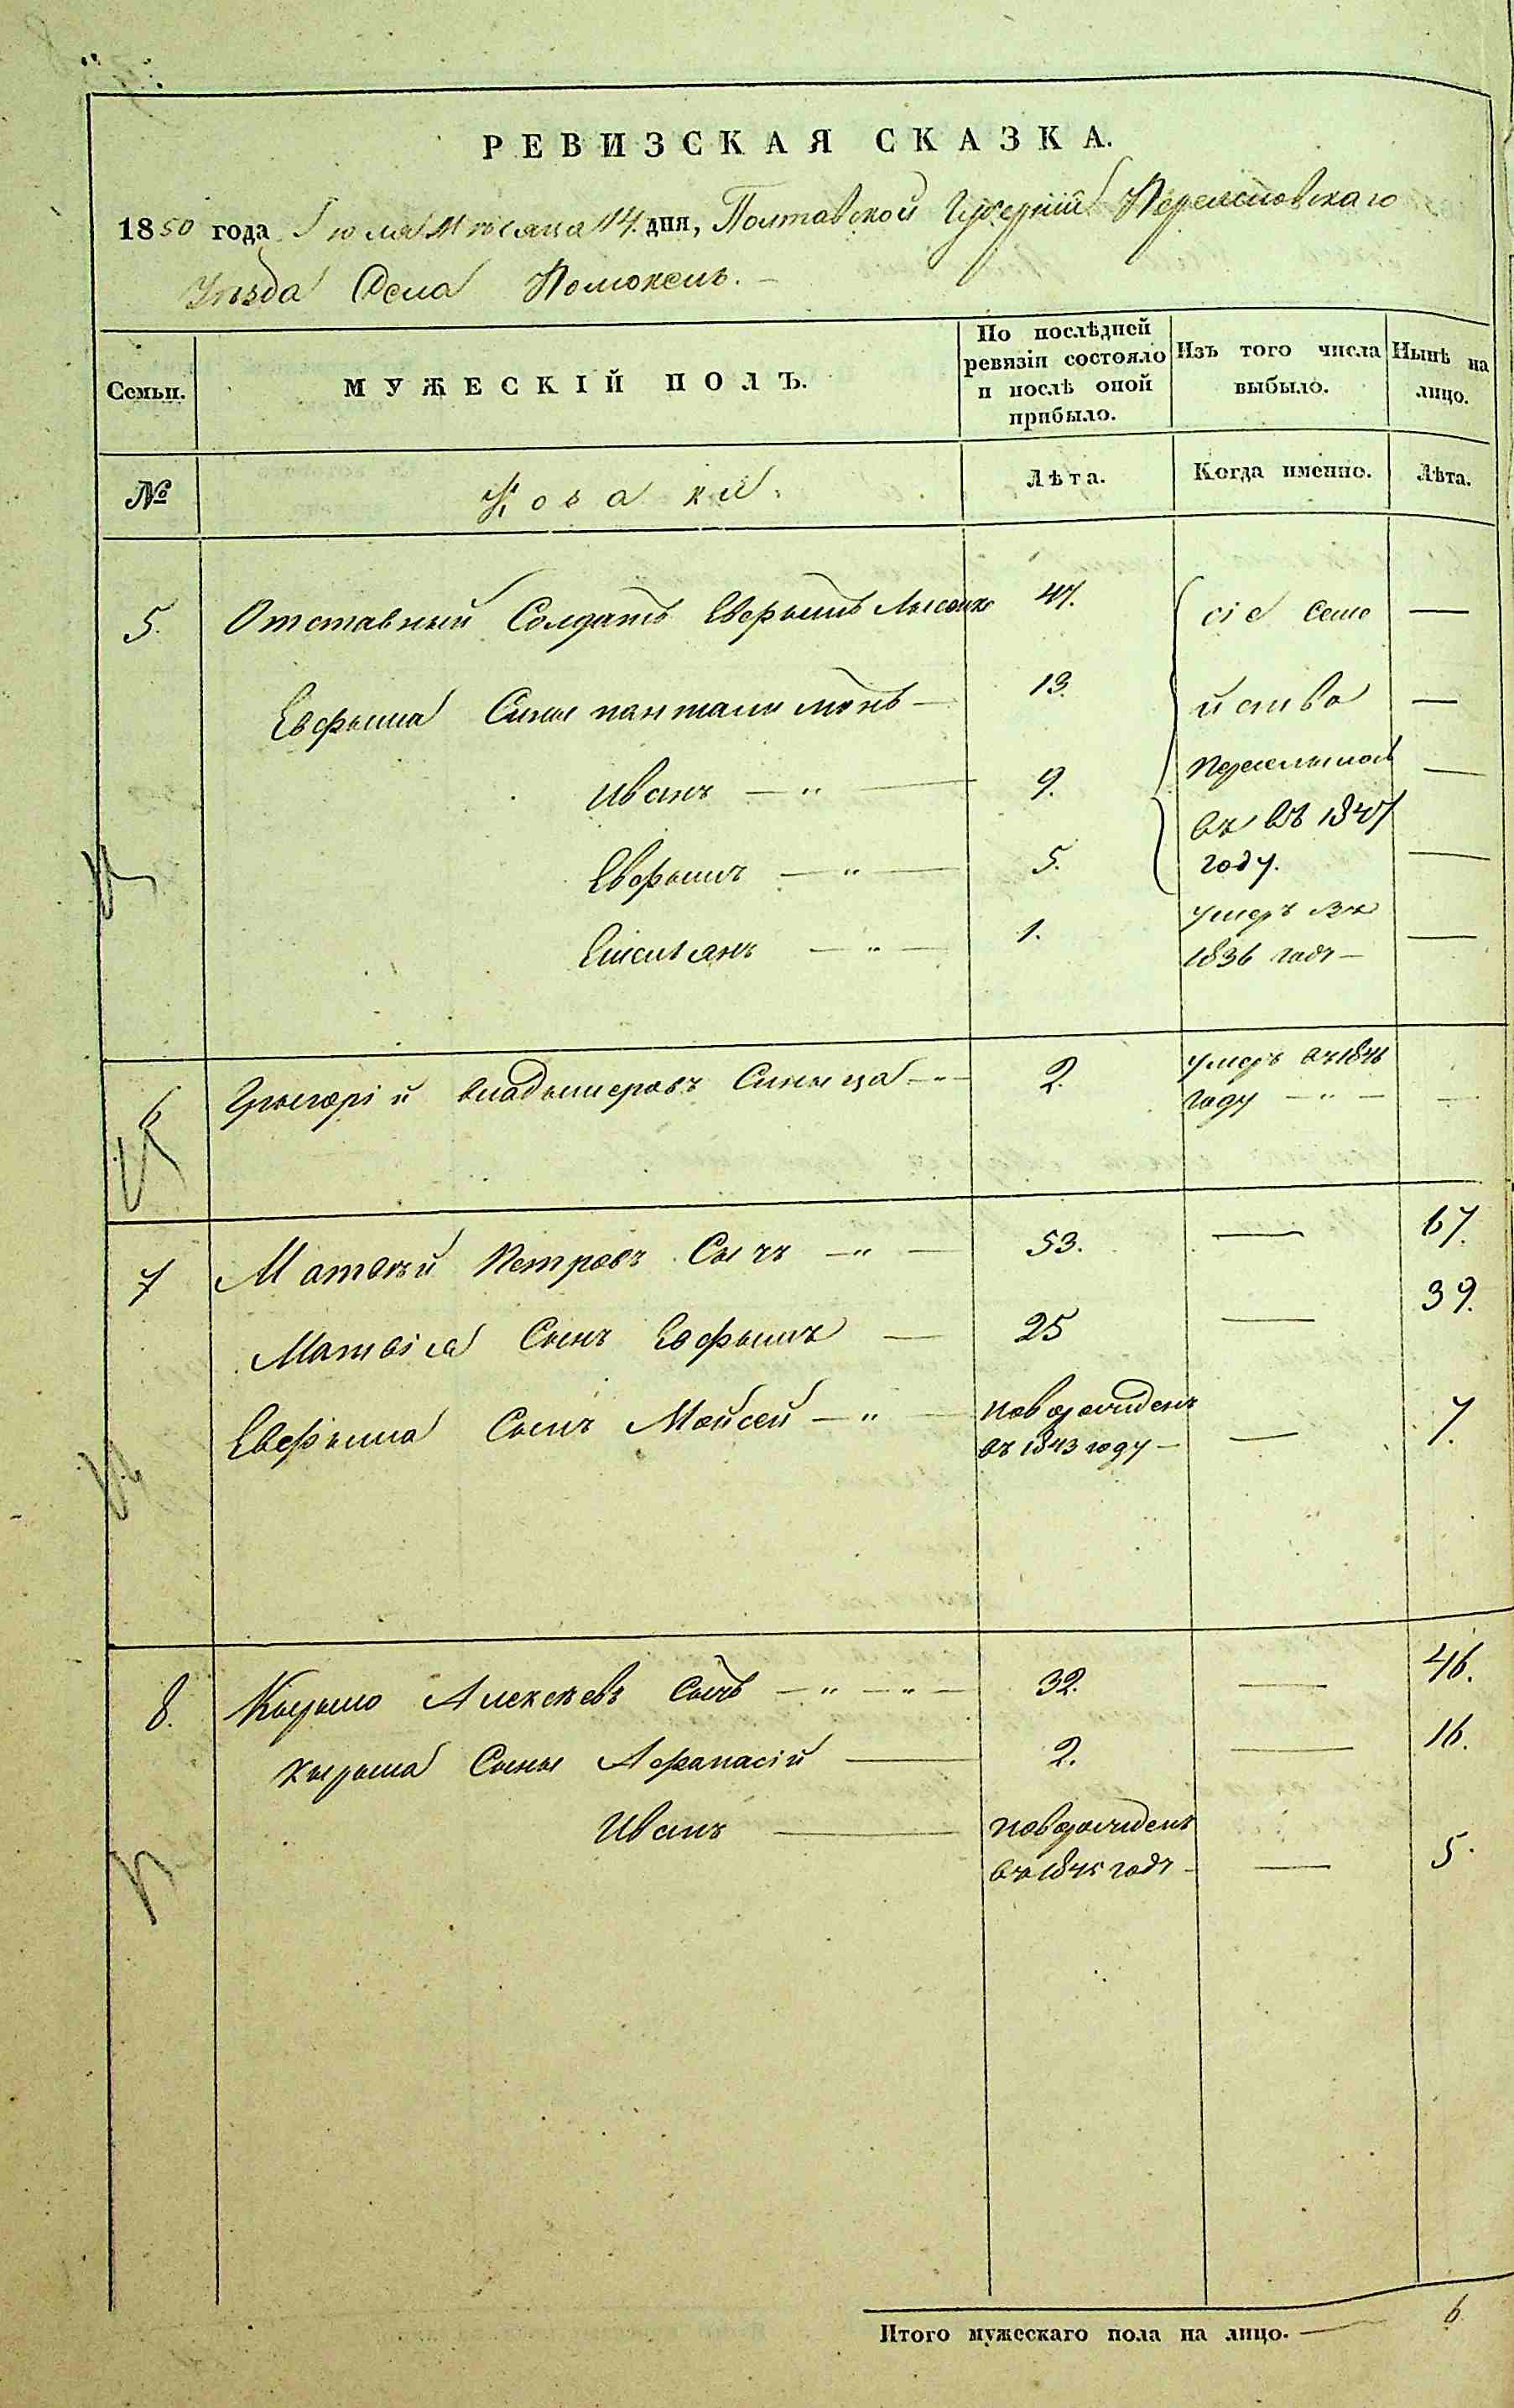 РЕВИЗСКАЯ СКАЗКА.
1850 года Іюля Мѣсяца 14 дня, Полтавской Губерніи Переяславскаго
Уѣзда Села Помоклъ. —
Семьи. МУЖЕСКІЙ ПОЛЪ. По послѣдней ревизіи состояло и послѣ оной прибыло. Изъ того числа выбыло. Нынѣ на лицо.
№ Козаки. Лѣта. Когда именно. Лѣта.
5. Отставный Солдатъ Евфымъ 47. сіе семе —
Евфыма Сыны пантелимонъ — 13. йство —
Иванъ — " — 9. —
въ 1847
Евфымъ — " — 5. году. —
— " — 1. умеръ въ —
1836 году —
6 Грыгорій Владымеровъ Синыца — " — 2. умеръ въ
году — " — —
7 Матвѣй Петровъ Сычъ — " — 53. — 67.
Матвѣя Сынъ Евфымъ — 25 — 39.
Евфыма Сынъ Мойсей — " — новорожденъ
въ 1843 году — — 7.
8. Кырыло Алексѣевъ Сычъ — " — " — 32. — 46.
Кырыла Сыны Афанасій — 2. — 16.
Иванъ — новорожденъ
въ 1845 году — — 5.
Итого мужескаго пола на лицо. — 6